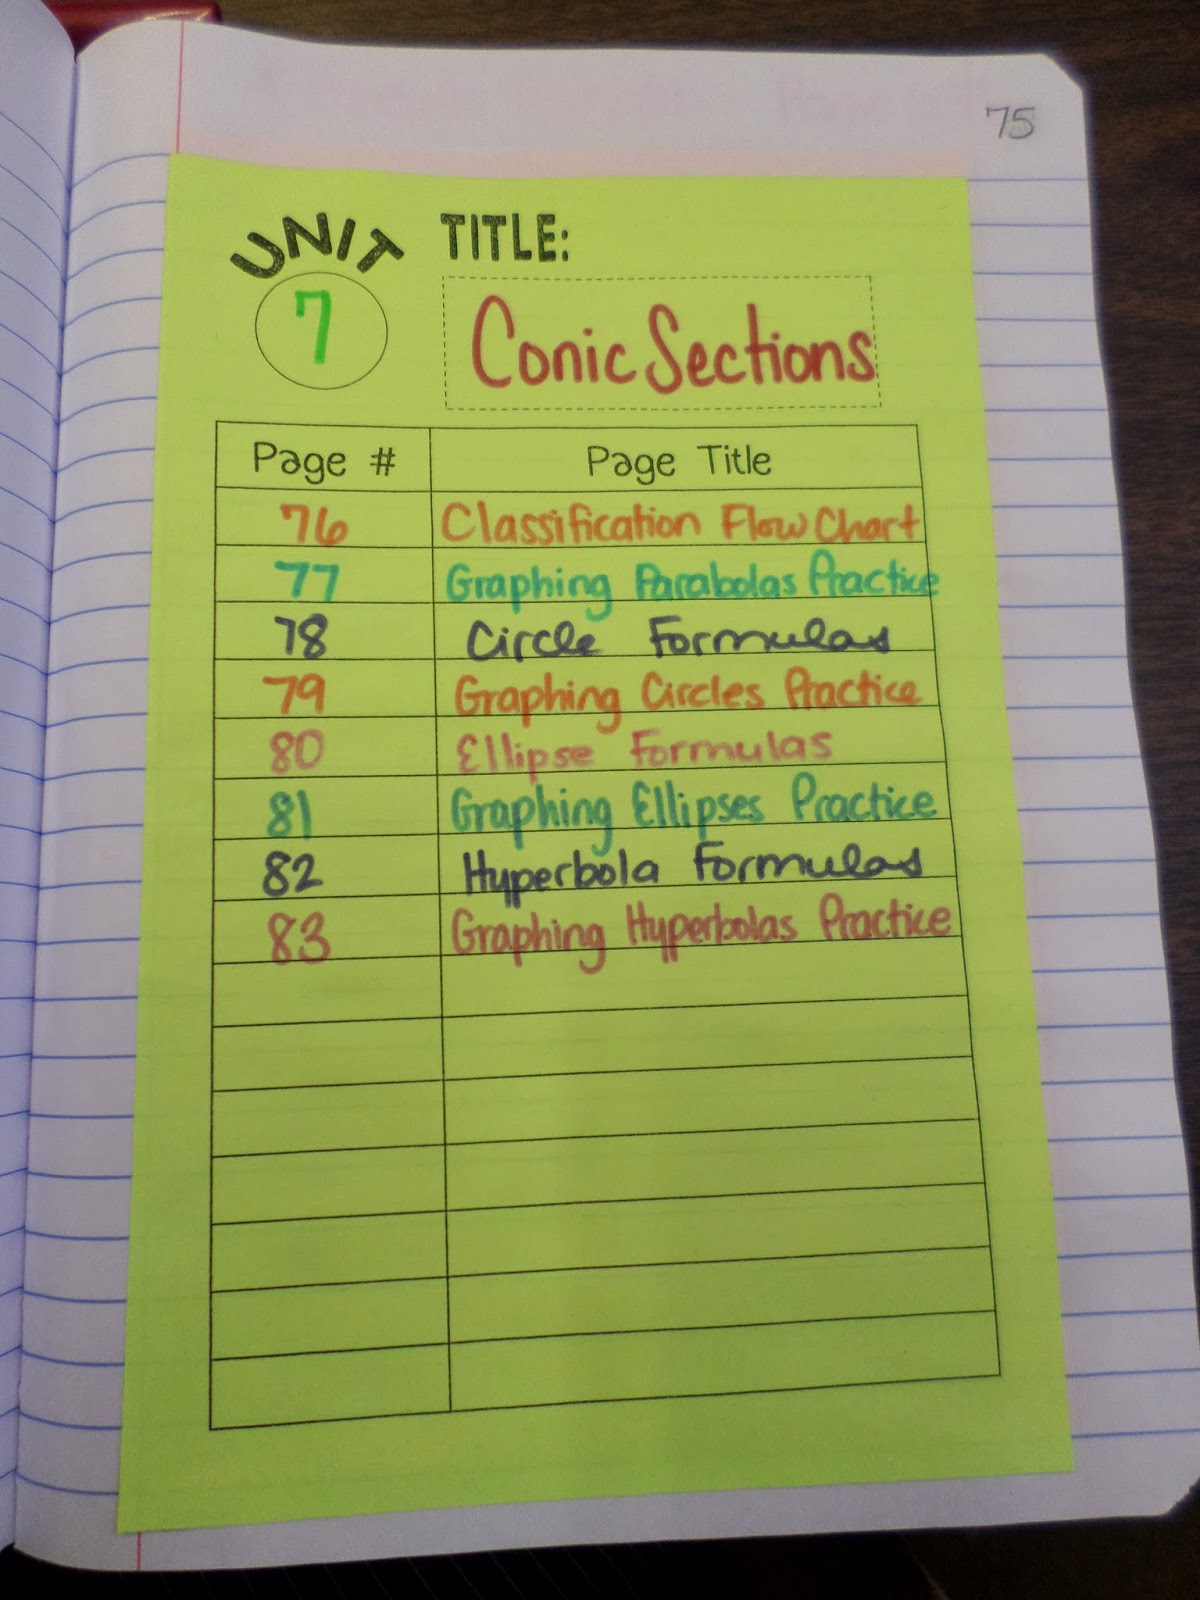 75
UNIT TITLE:
7 Conic Sections
Page # Page Title
76 Classification Flow Chart
77 Graphing Parabolas Practice
78 Circle Formulas
79 Graphing Circles Practice
80 Ellipse Formulas
81 Graphing Ellipses Practice
82 Hyperbola Formulas
83 Graphing Hyperbolas Practice